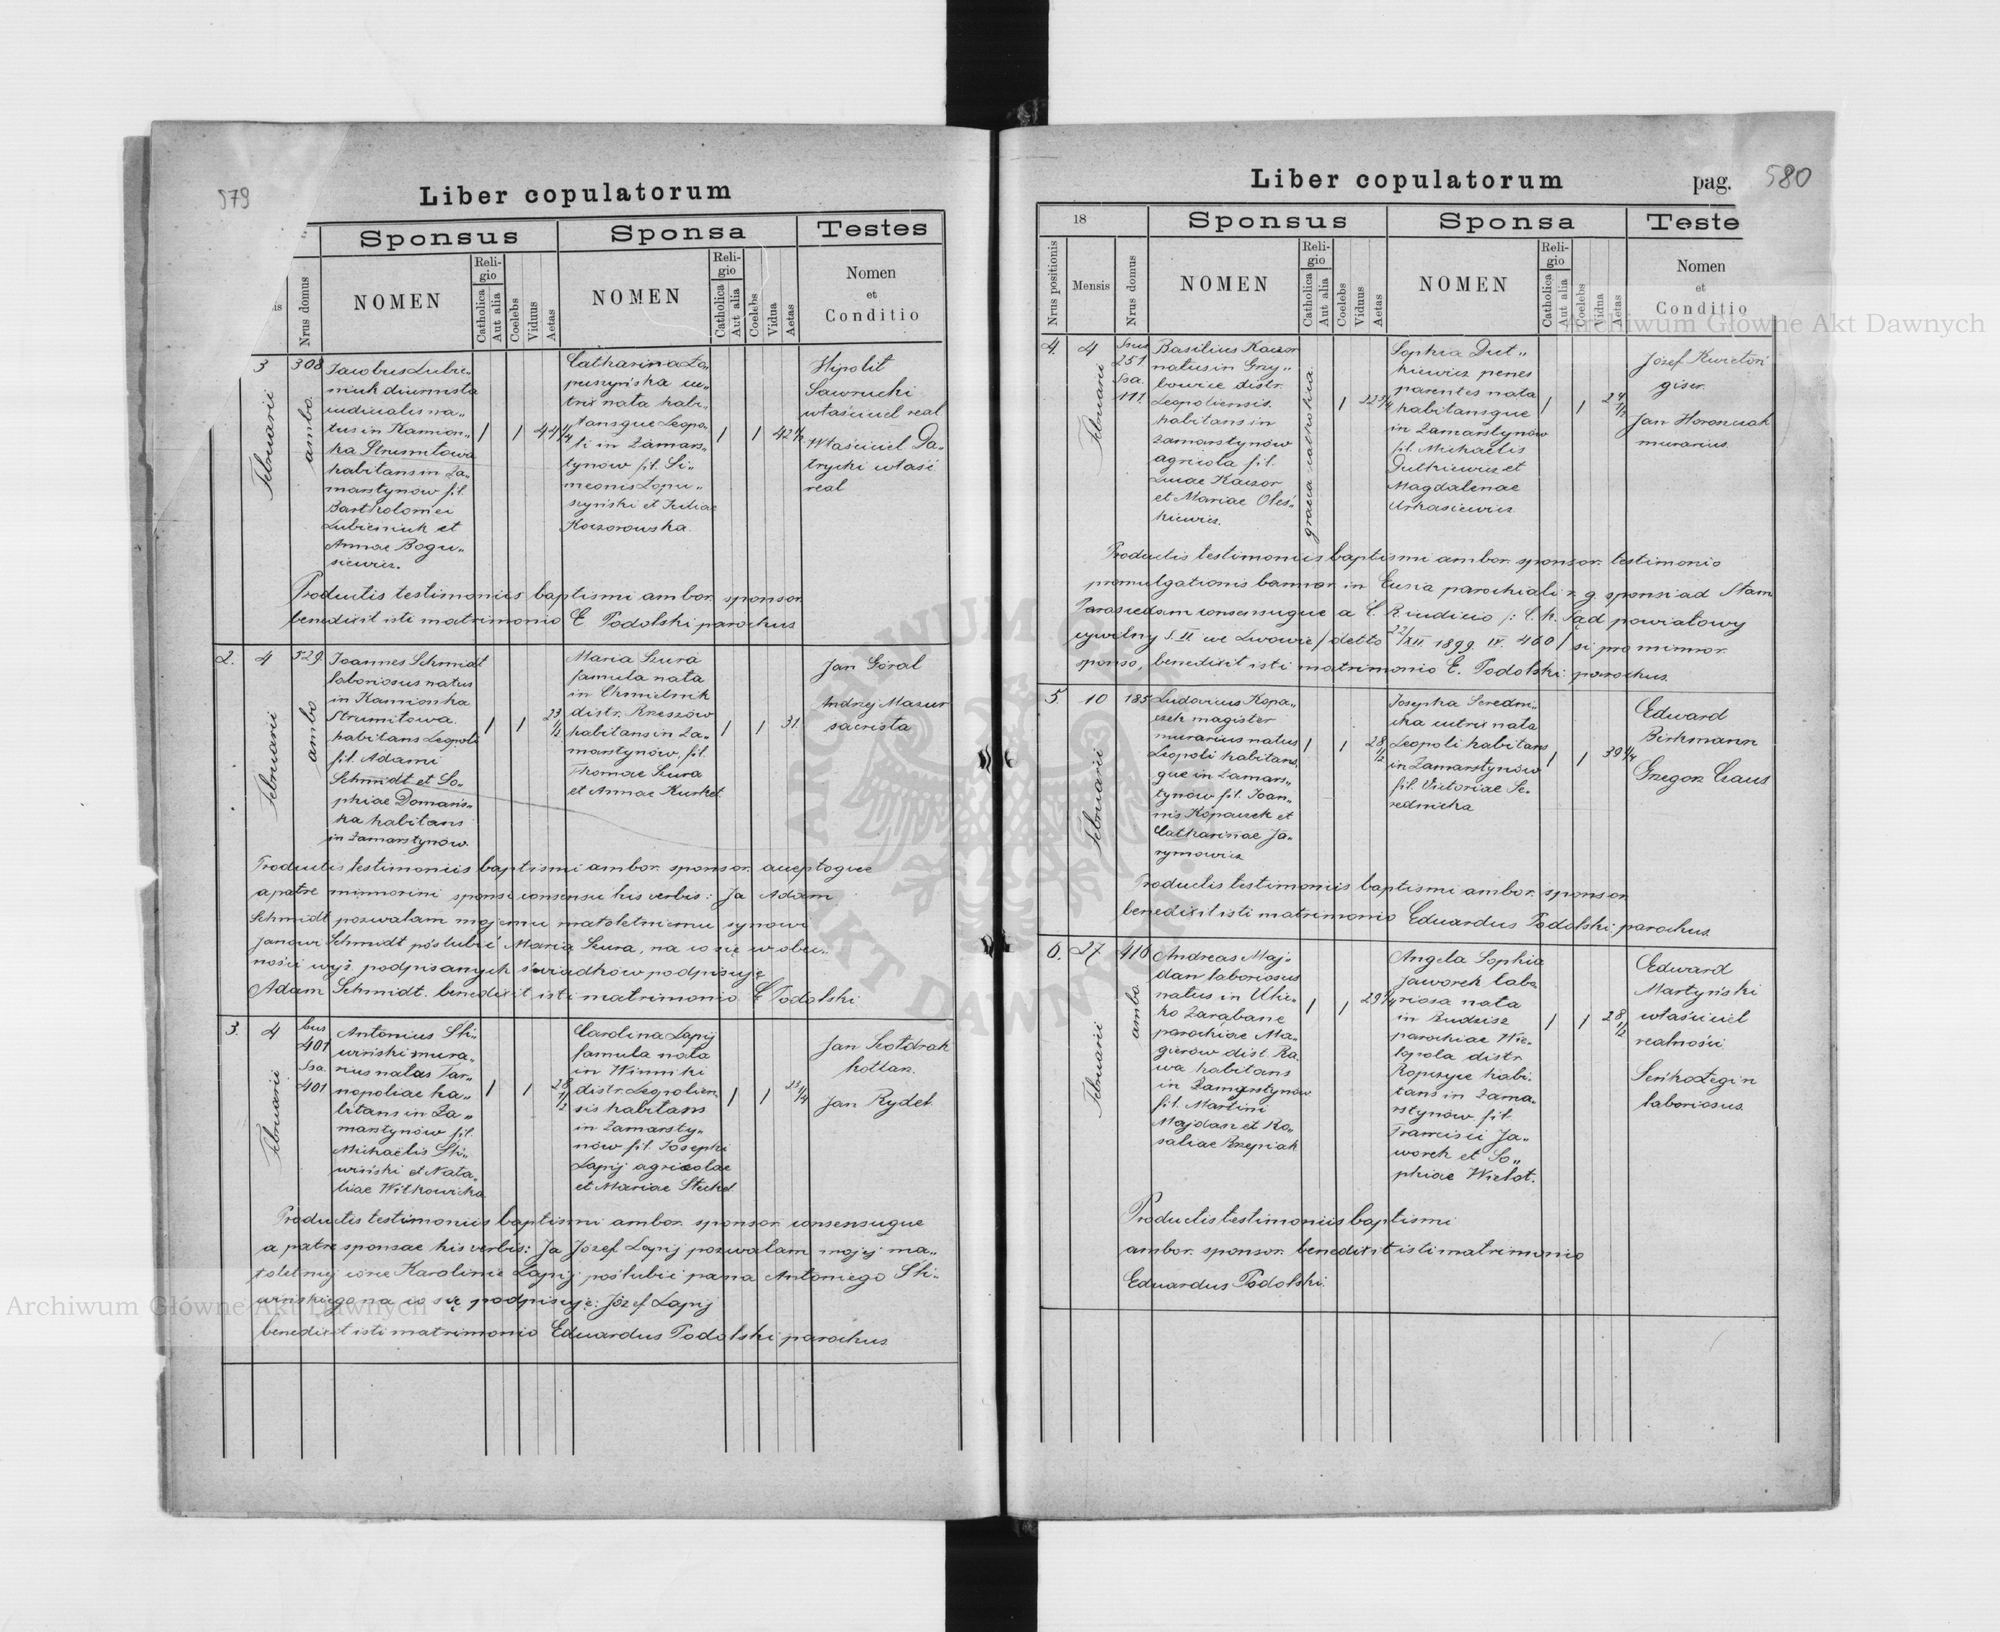 579
Liber copulatorum
Sponsus
Sponsa
Testes
Nrus domus
NOMEN
Religio
Catholica
Aut alia
Coelebs
Viduus
Aetas
NOMEN
Religio
Catholica
Aut alia
Coelebs
Vidua
Aetas
Nomen
et
Conditio
3
Februarii
308
ambo
Jacobus Lubie„
niuk diurnista
iudicialis na„
tus in Kamion„
ka Strumiłowa
habitans in Za„
marstynów fil.
Bartholomei
Lubieniuk et
Annae Bogu„
siewicz.
1
1
44 1/4
Catharina Ło„
puszyńska
nata habi„
tansque Leopo„
li in Zamars„
tynów fil. Si„
meonis Łopu„
szyński et Juliae
Koczorowska
1
1
42 1/2
Hipolit
Sawrucki
właściciel real
Właściciel Pa„
trycki właść
real
Productis testimoniis baptismi ambor. sponsor.
benedixit isti matrimonio E Podolski parochus
2.
4
Februarii
529
ambo
Joannes Schmidt
laboriosus natus
in Kamionka
Strumiłowa
habitans Leopoli
fil. Adami
Schmidt et So„
phiae Domańs„
ka habitans
in Zamarstynów.
1
1
23
Maria Szura
famula nata
in Chmielnik
distr. Rzeszów
habitans in Za„
marstynów. fil.
Thomae Szura
et Annae Kurkel
1
1
31.
Jan Góral
Andrzej Mazur
sacrista
Productis testimoniis baptismi ambor. sponsor. acceptoque
a patre minnorini sponsi consensu his verbis: Ja Adam
Schmidt pozwalam mojemu małoletniemu synowi
Janowi Schmidt póslubić Marią Szura, na co się w obec„
ności wyż. podpisanych świadków podpisuję
Adam Schmidt. benedixit isti matrimonio E Podolski
3.
4
Februarii
401
Ssa.
401
Antonius Śli„
wiński mura„
rius natus Tar„
nopoliae ha„
bitans in Za„
marstynów fil.
Michaelis Śli„
wiński et Nata„
liae Witkowicka
1
1
28 1/2
Carolina Łapij
famula nata
in Winniki
distr. Leopolien
sis habitans
in Zamarsty„
nów fil. Josephi
Łapij agricolae
et Mariae Steckel
1
1
23 1/4
Jan Kołdrak
kotlarz.
Jan Rydel.
Productis testimoniis baptismi ambor. sponsor consensuque
a patre sponsae his verbis: Ja Józef Łapij pozwalam mojej ma„
łoletniej córce Karolinie Łapij poślubić pana Antoniego Śli„
wińskiego na co się podpisuję: Józef Łapij
benedixit isti matrimonio Eduardus Podolski parochus
Liber copulatorum
pag.
580
18
Sponsus
Sponsa
Teste
Nrus positionis
Mensis
Nrus domus
NOMEN
Religio
Catholica
Aut alia
Coelebs
Viduus
Aetas
NOMEN
Religio
Catholica
Aut alia
Coelebs
Vidua
Aetas
Nomen
et
Conditio
4.
4
Februarii
Ssus
251
Ssa.
111.
Basilius Kaczor
natus in Grzy„
bowice distr.
Leopoliensis.
habitans in
Zamarstynów
agricola fil.
Lucae Kaczor
et Mariae Oleś„
kiewicz.
graeca catholica.
1
22 3/4
Sophia Dut„
kiewicz penes
parentes nata
habitansque
in Zamarstynów
fil. Michaelis
Dutkiewicz et
Magdalenae
Urkasiewicz
1
1
24
Józef Kwiatoń
giser.
Jan Horoszczak
murarius.
Productis testimoniis baptismi ambor. sponsor. testimonio
promulgationis bannor in Ecclesia parochiali r. g. sponsi ad Stam
consensuque a C. R. iudicio /: C. k. Sąd powiatowy
cywilny S. II we Lwowie / ddto 22/XII. 1899 IV. 460 / si pro minnor.
sponso, benedixit isti matrimonio E. Podolski: parochus.
5.
10
Februarii
185
Ludovicus Kopa„
czek magister
murarius natus
Leopoli habitans
que in Zamars„
tynów fil. Joan„
nis Kopaczek et
Catharinae Ja„
rymowicz
1
1
28 1/2
Josepha Seredni„
cka nata
Leopoli habitans
in Zamarstynów
fil. Victoriae Se„
rednicka
1
1
39 1/4
Edward
Birkmann
Grzegorz Czaus
Productis testimoniis baptismi ambor. sponsor.
benedixit isti matrimonio Eduardus Podolski: parochus.
6.
27
Februarii
410
ambo
Andreas Maj„
dan laboriosus
natus in Ulic„
ko Zarabane
parochiae Ma„
gierów dist. Ra„
wa habitans
in Zamarstynów
fil. Martini
Majdan et Ro„
saliae Rzepiak
1
1
29 1/4
Angela Sophia
Jaworek labo
riosa nata
in Budzisz
parochiae Wie„
lopola distr
Ropczyce habi„
tans in Zama„
rstynów fil.
Francisci Ja„
worek et So„
phiae Wielot.
1
1
28 1/2
Edward
Martyński
właściciel
realności
Seńko Łegin
laboriosus.
Productis testimoniis baptismi
ambor. sponsor. benedixit isti matrimonio
Eduardus Podolski:
Archiwum Główne Akt Dawnych
Archiwum Główne Akt Dawnych
ARCHIWUM GŁÓWNE AKT DAWNYCH